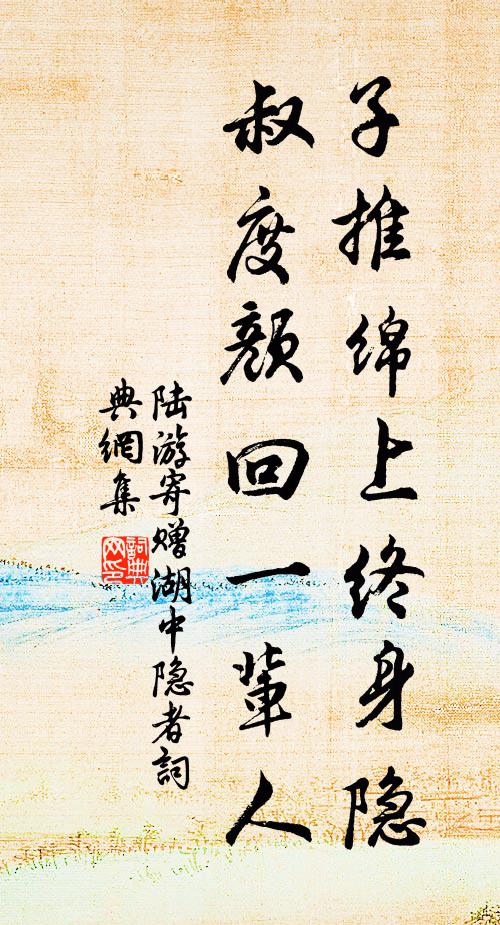 子推绵上终身隐
叔度颜回一辈人
陆游寄赠湖中隐者詞
典網集
詞典
网印